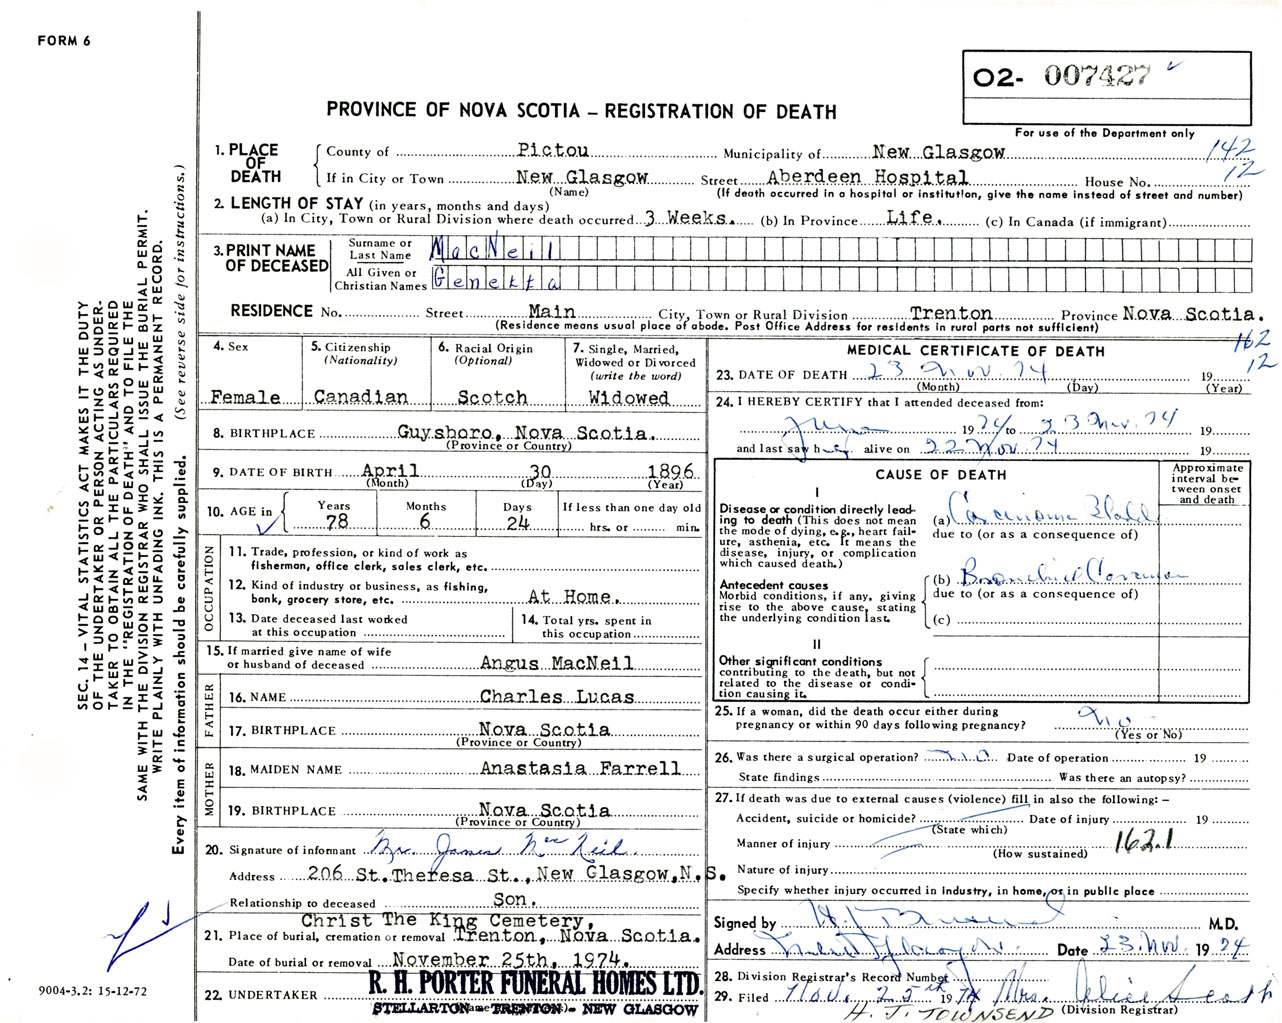 FORM 6
O2- 007427
PROVINCE OF NOVA SCOTIA – REGISTRATION OF DEATH
For use of the Department only
142
12
1. PLACE OF DEATH
County of Pictou Municipality of New Glasgow
If in City or Town New Glasgow Street Aberdeen Hospital House No.
(Name) (If death occurred in a hospital or institution, give the name instead of street and number)
2. LENGTH OF STAY (in years, months and days)
(a) In City, Town or Rural Division where death occurred 3 Weeks. (b) In Province Life. (c) In Canada (if immigrant)
3. PRINT NAME OF DECEASED
Surname or Last Name MacNeil
All Given or Christian Names Genetta
RESIDENCE No. Street Main City, Town or Rural Division Trenton Province Nova Scotia.
(Residence means usual place of abode. Post Office Address for residents in rural parts not sufficient)
162
12
4. Sex Female
5. Citizenship (Nationality) Canadian
6. Racial Origin (Optional) Scotch
7. Single, Married, Widowed or Divorced (write the word) Widowed
8. BIRTHPLACE Guysboro, Nova Scotia.
(Province or Country)
9. DATE OF BIRTH April 30 1896
(Month) (Day) (Year)
10. AGE in Years 78 Months 6 Days 24 If less than one day old hrs. or min.
OCCUPATION
11. Trade, profession, or kind of work as fisherman, office clerk, sales clerk, etc.
12. Kind of industry or business, as fishing, bank, grocery store, etc. At Home.
13. Date deceased last worked at this occupation
14. Total yrs. spent in this occupation
15. If married give name of wife or husband of deceased Angus MacNeil
FATHER
16. NAME Charles Lucas
17. BIRTHPLACE Nova Scotia
(Province or Country)
MOTHER
18. MAIDEN NAME Anastasia Farrell
19. BIRTHPLACE Nova Scotia
(Province or Country)
20. Signature of informant Mr. James MacNeil
Address 206 St. Theresa St., New Glasgow, N.S.
Relationship to deceased Son.
Christ The King Cemetery,
21. Place of burial, cremation or removal Trenton, Nova Scotia.
Date of burial or removal November 25th, 1974.
22. UNDERTAKER R. H. PORTER FUNERAL HOMES LTD.
STELLARTON - TRENTON - NEW GLASGOW
MEDICAL CERTIFICATE OF DEATH
23. DATE OF DEATH 23 Nov. 74 19
(Month) (Day) (Year)
24. I HEREBY CERTIFY that I attended deceased from:
1974 to 23 Nov. 74 19
and last saw her alive on 22 Nov 74 19
CAUSE OF DEATH
Approximate interval between onset and death
I
Disease or condition directly leading to death (This does not mean the mode of dying, e.g., heart failure, asthenia, etc. It means the disease, injury, or complication which caused death.)
(a) Carcinoma
due to (or as a consequence of)
Antecedent causes
Morbid conditions, if any, giving rise to the above cause, stating the underlying condition last.
(b) Bronchial Carcinoma
due to (or as a consequence of)
(c)
II
Other significant conditions contributing to the death, but not related to the disease or condition causing it.
25. If a woman, did the death occur either during pregnancy or within 90 days following pregnancy? No
(Yes or No)
26. Was there a surgical operation? No Date of operation 19
State findings Was there an autopsy?
27. If death was due to external causes (violence) fill in also the following: –
Accident, suicide or homicide? Date of injury 19
(State which)
Manner of injury 162.1
(How sustained)
Nature of injury
Specify whether injury occurred in industry, in home, or in public place
Signed by M.D.
Address Date 23 Nov. 1974
28. Division Registrar's Record Number
29. Filed Nov. 25th 1974 Mrs. Alice Scott
H. J. TOWNSEND (Division Registrar)
SEC. 14 – VITAL STATISTICS ACT MAKES IT THE DUTY
OF THE UNDERTAKER OR PERSON ACTING AS UNDER-
TAKER TO OBTAIN ALL THE PARTICULARS REQUIRED
IN THE "REGISTRATION OF DEATH" AND TO FILE THE
SAME WITH THE DIVISION REGISTRAR WHO SHALL ISSUE THE BURIAL PERMIT.
WRITE PLAINLY WITH UNFADING INK. THIS IS A PERMANENT RECORD.
Every item of information should be carefully supplied. (See reverse side for instructions.)
9004-3.2: 15-12-72